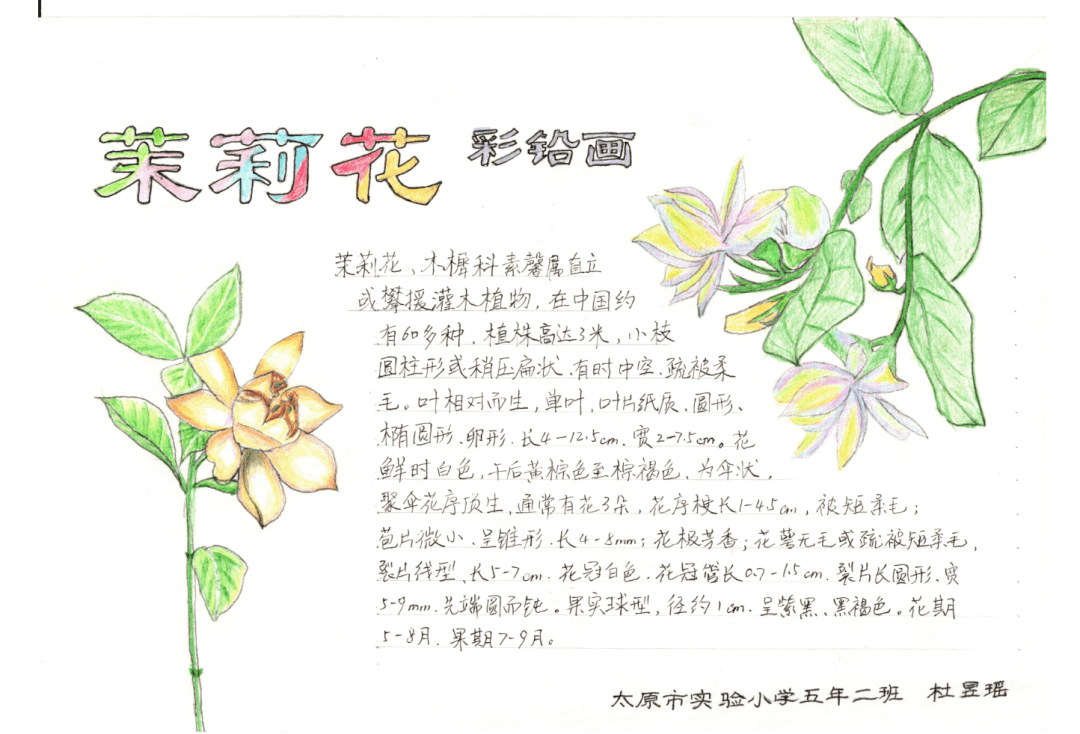 茉莉花 彩铅画
茉莉花、木樨科素馨属直立
或攀援灌木植物，在中国约
有60多种，植株高达3米，小枝
圆柱形或稍压扁状、有时中空、疏被柔
毛。叶相对而生，单叶，叶片纸质、圆形、
椭圆形、卵形、长4-12.5cm、宽2-7.5cm。花
鲜时白色，午后黄棕色至棕褐色、为伞状，
聚伞花序顶生，通常有花3朵，花序梗长1-4.5cm，被短柔毛；
苞片微小、呈锥形、长4-8mm；花极芳香；花萼无毛或疏被短柔毛，
裂片线型、长5-7cm、花冠白色、花冠管长0.7-1.5cm、裂片长圆形、宽
5-9mm、先端圆而钝。果实球型，径约1cm、呈紫黑、黑褐色。花期
5-8月、果期7-9月。
太原市实验小学五年二班 杜昱瑶